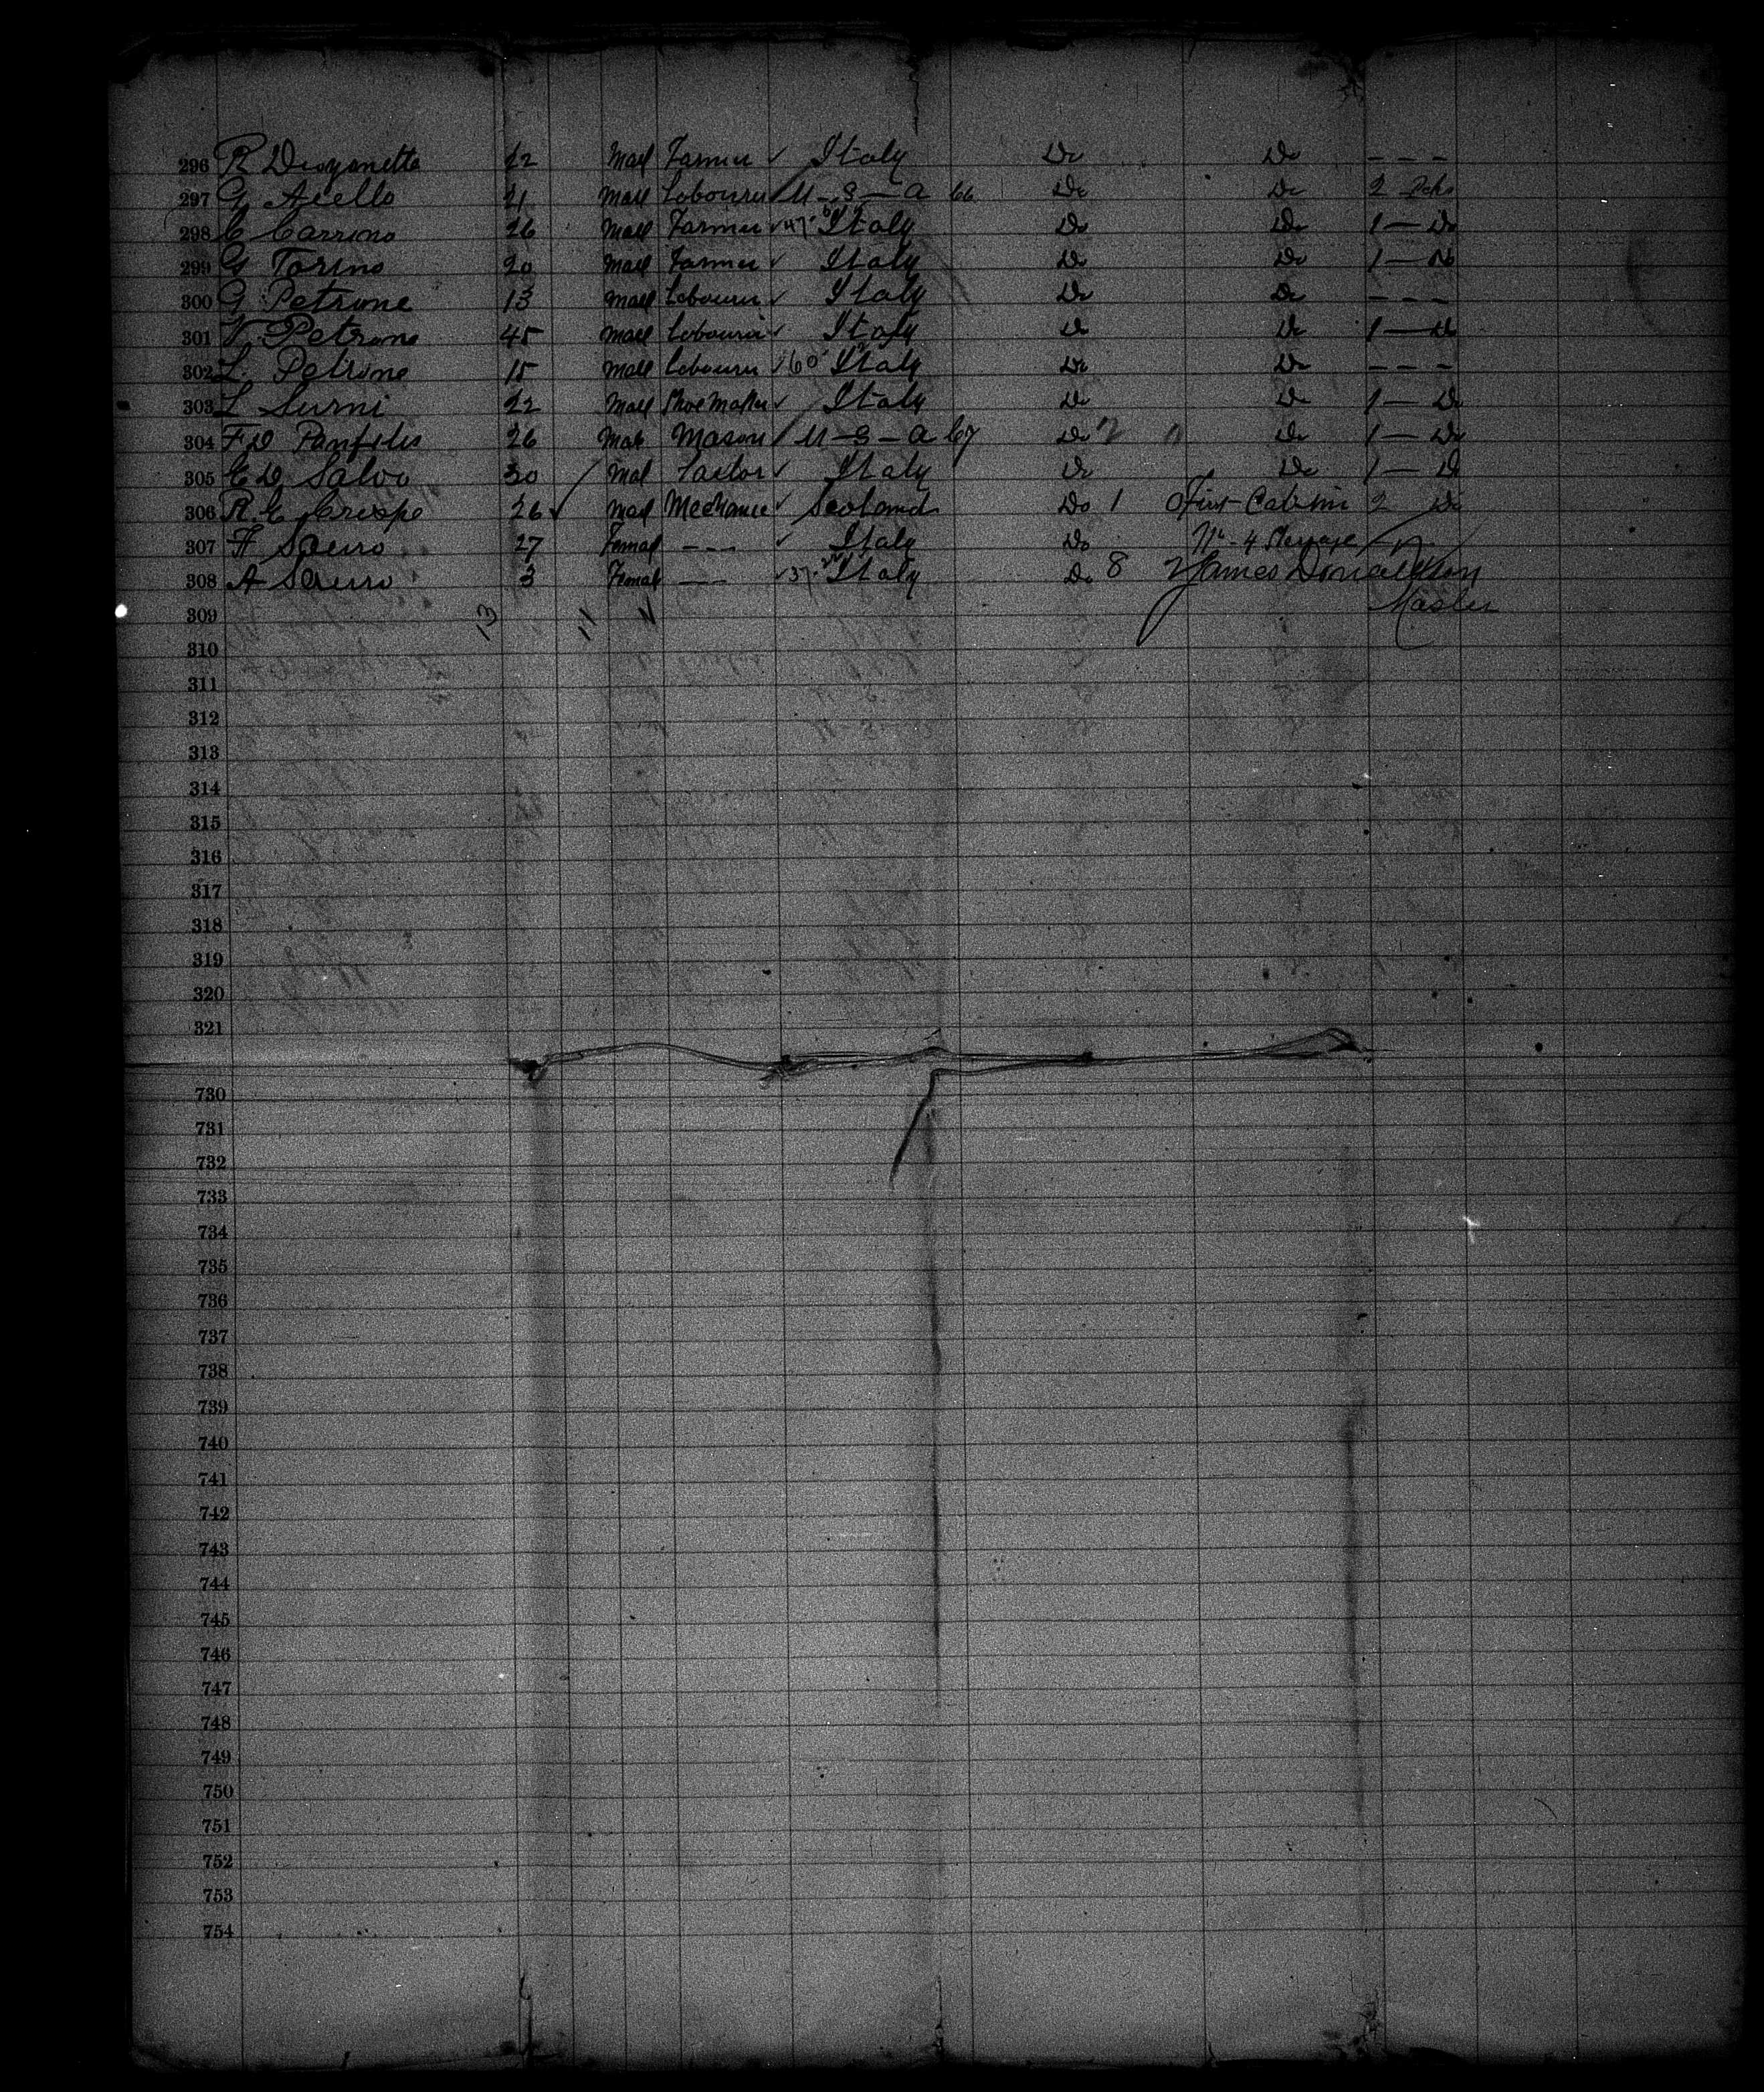 296 R 22 Male Farmer ✓ Italy Do Do - - -
297 G Aiello 21 Male Labourer U-S-A 66 Do Do 2 Pcks
298 C Carrino 26 Male Farmer ✓ 47 Italy Do Do 1 — Do
299 G Torino 20 Male Farmer ✓ Italy Do Do 1 — Do
300 G Petrone 13 Male Labourer ✓ Italy Do Do - - -
301 V Petrone 45 Male Labourer ✓ Italy Do Do 1 — Do
302 L. Petrone 15 Male Labourer ✓ 60 Italy Do Do - - -
303 L Surni 22 Male Shoe Maker ✓ Italy Do Do 1 — Do
304 F D Panfilis 26 Male Mason U-S-A 67 Do 2 Do 1 — Do
305 E D Salvo 30 Male Tailor ✓ Italy Do Do 1 — Do
306 R E 26 ✓ Male Mechanic ✓ Scotland Do 1 First Cabin 2 Do
307 F Sauro 27 Female --- ✓ Italy Do No 4 Steerage
308 A Sauro 3 Female — ✓ 37 Italy Do 8 James Donaldson
309 13 11 Master
310
311
312
313
314
315
316
317
318
319
320
321
730
731
732
733
734
735
736
737
738
739
740
741
742
743
744
745
746
747
748
749
750
751
752
753
754